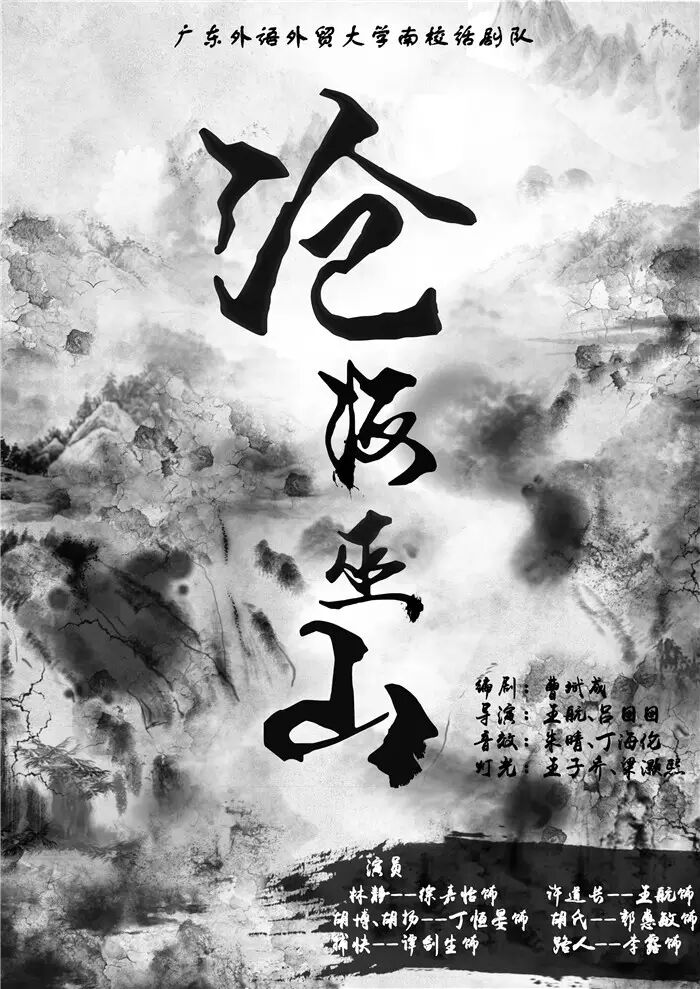 广东外语外贸大学南校话剧队
沧
海
巫
山
编剧：曹斌成
导演：王航、吕田田
音效：朱晴、丁海伦
灯光：王子乔、梁灏熙
演员
林静——徐嘉怡饰 许道长——王航饰
胡博、胡扬——丁恒晏饰 胡氏——郭惠敏饰
捕快——谭剑生饰 路人——李露饰